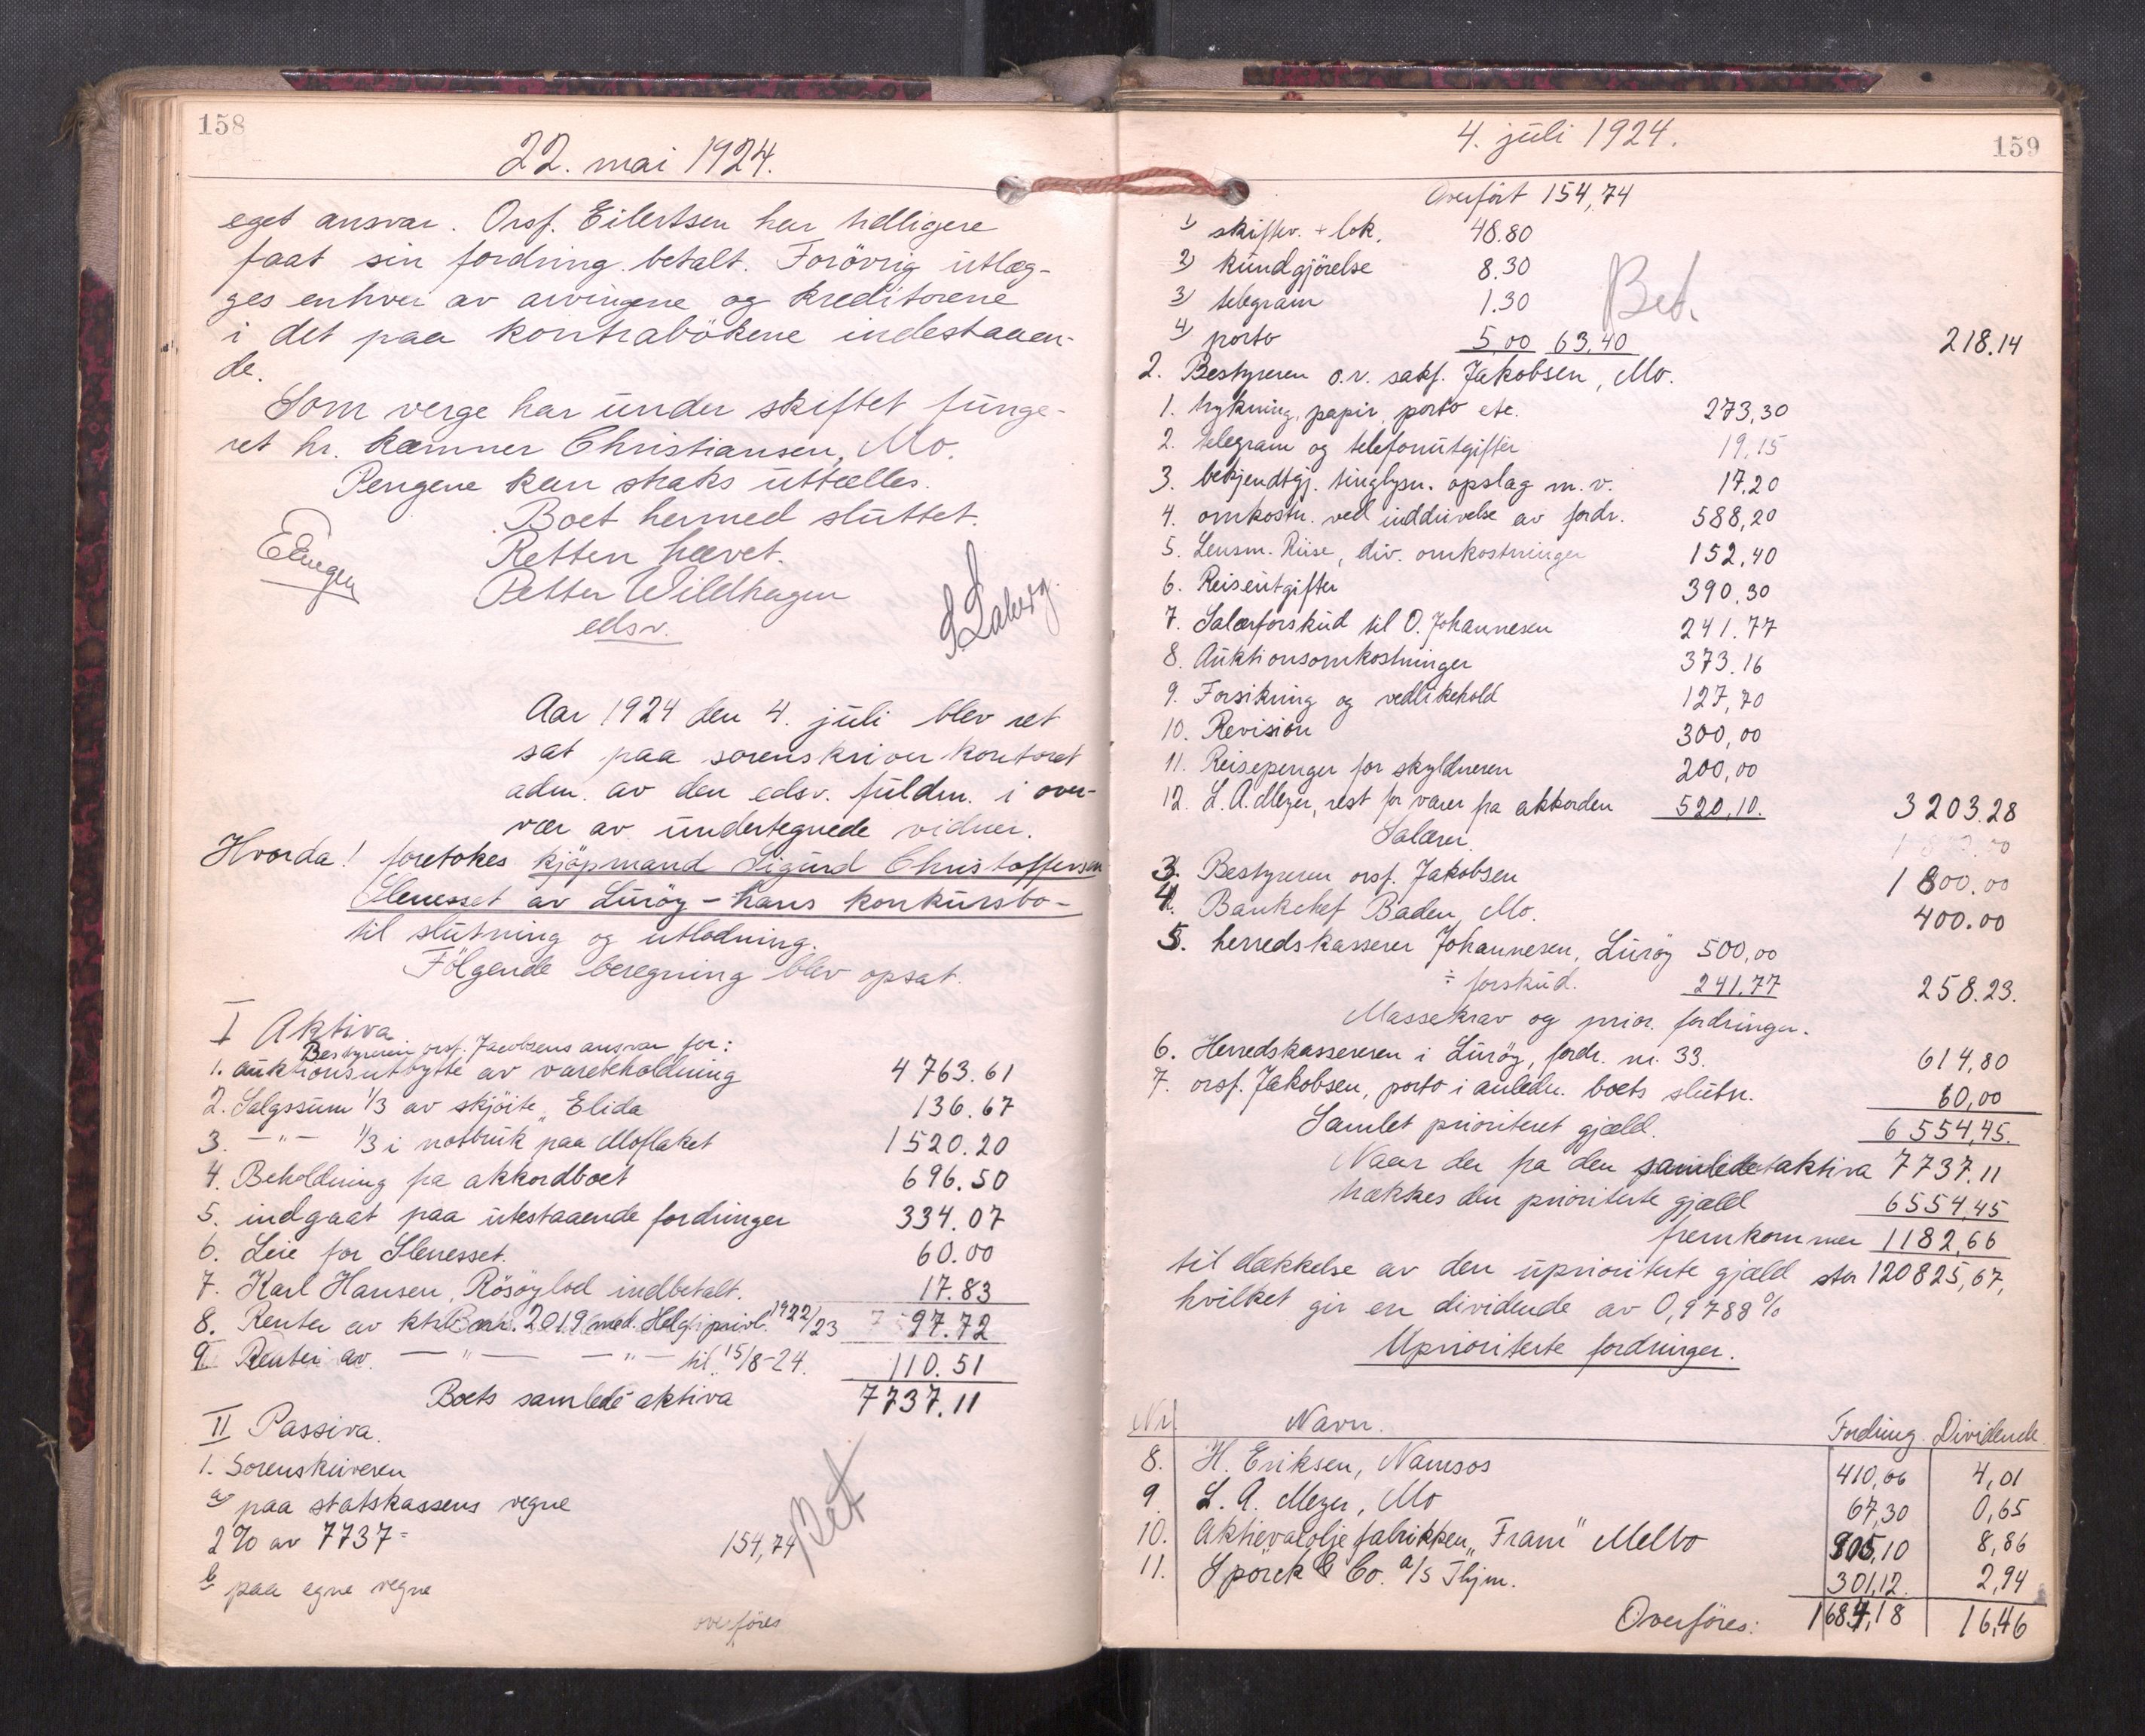 158
22. mai 1924.
eget ansvar. Orsf. Eilertsen har tidligere
faat sin fordring betalt. Forövrig utlæg-
ges enhver av arvingene og kreditorene
i det paa kontrabökene indestaaen-
de.
Som verge har under skiftet funge-
ret hr. kæmner Christiansen, Mo.
Pengene kan straks uttælles.
Boet hermed sluttet.
Retten hævet.
Petter Wildhagen
edsv.
Aar 1924 den 4. juli blev ret
sat paa sorenskriverkontoret
adm. av den edsv. fuldm. i over-
vær av undertegnede vidner.
Hvorda! foretokes kjöpmand Sigurd Christoffersen
Slenesset av Luröy - hans konkursbo -
til slutning og utlodning.
Fölgende beregning blev opsat.
I Aktiva
Bestyreren orsf. Jacobsens ansvar for:
1. auktionsutbytte av varebeholdning 4763.61
2. Salgssum 1/3 av skjöite „Elida 136.67
3. —"— 1/3 i notbruk paa Moflaket 1520.20
4. Beholdning fra akkordboet 696.50
5. indgaat paa utestaaende fordringer 334.07
6. Leie for Slenesset. 60.00
7. Karl Hansen, Rösöylod indbetalt. 17.83
8. Renter av ktrb nr. 2019 med Helg. privb. 1922/23 97.72
9. Renter av —"— —"— til 15/8-24. 110.51
Boets samlede aktiva 7737.11
II Passiva.
1. Sorenskriveren
a) paa statskassens vegne
2% av 7737 = 154,74 Bet
b) paa egne vegne
overföres
159
4. juli 1924.
Overfört 154,74
1) skiftev. + lok. 48.80
2) kundgjörelse 8.30
3) telegram 1.30 Bet.
4) porto 5,00 63,40 218.14
2. Bestyreren o.r. sakf. Jakobsen, Mo.
1. trykning, papir, porto etc. 273,30
2. telegram og telefonutgifter 19,15
3. bekjendtgj. tinglysn. opslag m.v. 17,20
4. omkostn. ved inddrivelse av fordr. 588,20
5. Lensm. Riise, div. omkostninger 152,40
6. Reiseutgifter 390.30
7. Salærforskud til O. Johannesen 241.77
8. Auktionsomkostninger 373.16
9. Forsikring og vedlikehold 127,70
10. Revision 300,00
11. Reisepenger for skyldneren 200,00
12. L.A. Meyer, rest for varer fra akkorden 520,10. 3203.28
Salærer.
3. Bestyreren orsf. Jakobsen 1800.00
4. Bankchef Baden, Mo. 400.00
5. herredskasserer Johannesen, Luröy 500,00
÷ forskud. 241.77 258.23.
Massekrav og prior. fordringer.
6. Herredskassereren i Luröy, fordr. nr. 33. 614,80
7. orsf. Jakobsen, porto i anledn. boets slutn. 60,00
Samlet prioritert gjæld. 6554,45.
Naar der fra den samlede aktiva 7737.11
trækkes den prioriterte gjæld 6554,45
fremkommer 1182,66
til dækkelse av den uprioriterte gjæld stor 120825,67,
hvilket gir en dividende av 0,9788%
Uprioriterte fordringer.
Nr. Navn. Fordring Dividende
8. H. Eriksen, Namsos 410,66 4,01
9. L. A. Meyer, Mo 67,30 0,65
10. Aktievalolje fabrikken „Fram" Melbo 905,10 8,86
11. Spörck & Co. a/s Thjm. 301,12. 2,94
Overföres: 1684,18 16,46